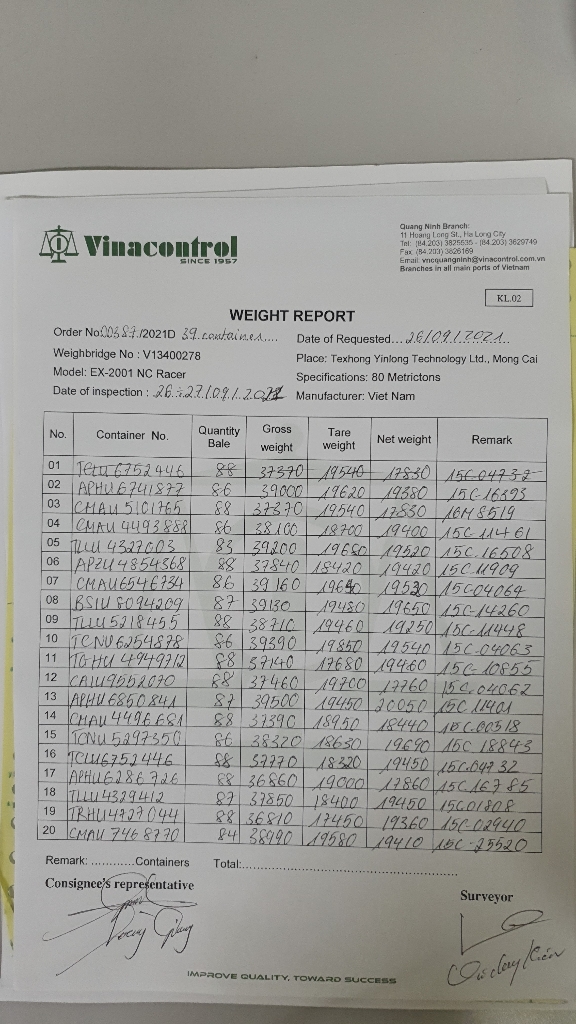 Vinacontrol
SINCE 1957
Quang Ninh Branch:
11 Hoang Long St., Ha Long City
Tel: (84.203) 3825535 - (84.203) 3629749
Fax: (84.203) 3626169
Email: vncquangninh@vinacontrol.com.vn
Branches in all main ports of Vietnam
KL.02
WEIGHT REPORT
Order No:00387/2021D 39 container.... Date of Requested...26/09/2021..
Weighbridge No : V13400278 Place: Texhong Yinlong Technology Ltd., Mong Cai
Model: EX-2001 NC Racer Specifications: 80 Metrictons
Date of inspection : 26÷27/09/2021 Manufacturer: Viet Nam
No. Container No. Quantity Bale Gross weight Tare weight Net weight Remark
01 TCLU6752446 88 37370 19540 17830 15C-04732
02 APHU6741877 86 39000 19620 19380 15C-16393
03 CMAU5101765 88 37370 19540 17830 16M8519
04 CMAU4493888 86 38100 18700 19400 15C-11461
05 TLLU4327003 83 39200 19680 19520 15C-16508
06 APZU4854368 88 37840 18420 19420 15C-11909
07 CMAU6546734 86 39160 19630 19530 15C-04064
08 BSIU8094209 87 39130 19480 19650 15C-14260
09 TLLU5218455 88 38710 19460 19250 15C-11448
10 TCNU6254878 86 39390 19850 19540 15C-04063
11 TGHU4949712 88 37140 17680 19460 15C-10855
12 CAIU9552070 88 37460 19700 17760 15C-04062
13 APHU6850841 87 39500 19450 20050 15C11401
14 CMAU4496681 88 37390 18950 18440 15C.00318
15 TCNU5297350 86 38320 18630 19690 15C 18843
16 TCLU6752446 88 37770 18320 19450 15C.04732
17 APHU6286726 88 36860 19000 17860 15C16785
18 TLLU4329412 87 37850 18400 19450 15C01808
19 TRHU4727044 88 36810 17450 19360 15C-02940
20 CMAU7468770 84 38990 19580 19410 15C-25520
Remark: ............Containers Total:......................................................
Consignee's representative Surveyor
IMPROVE QUALITY, TOWARD SUCCESS